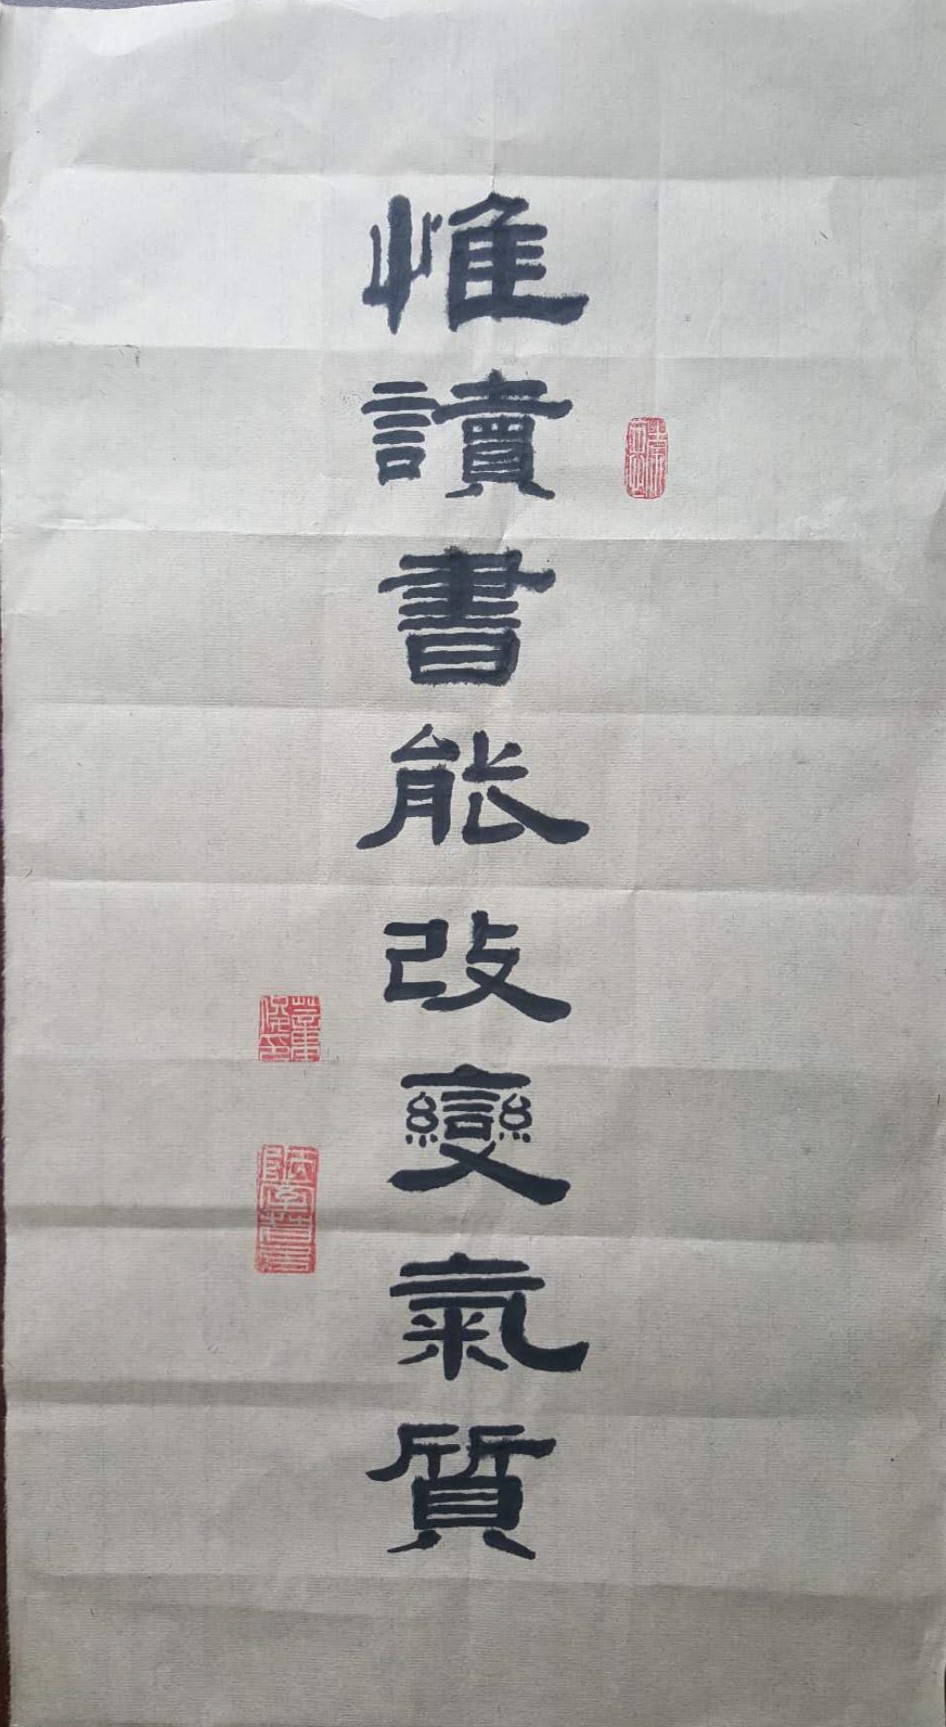 惟讀書能改變氣質